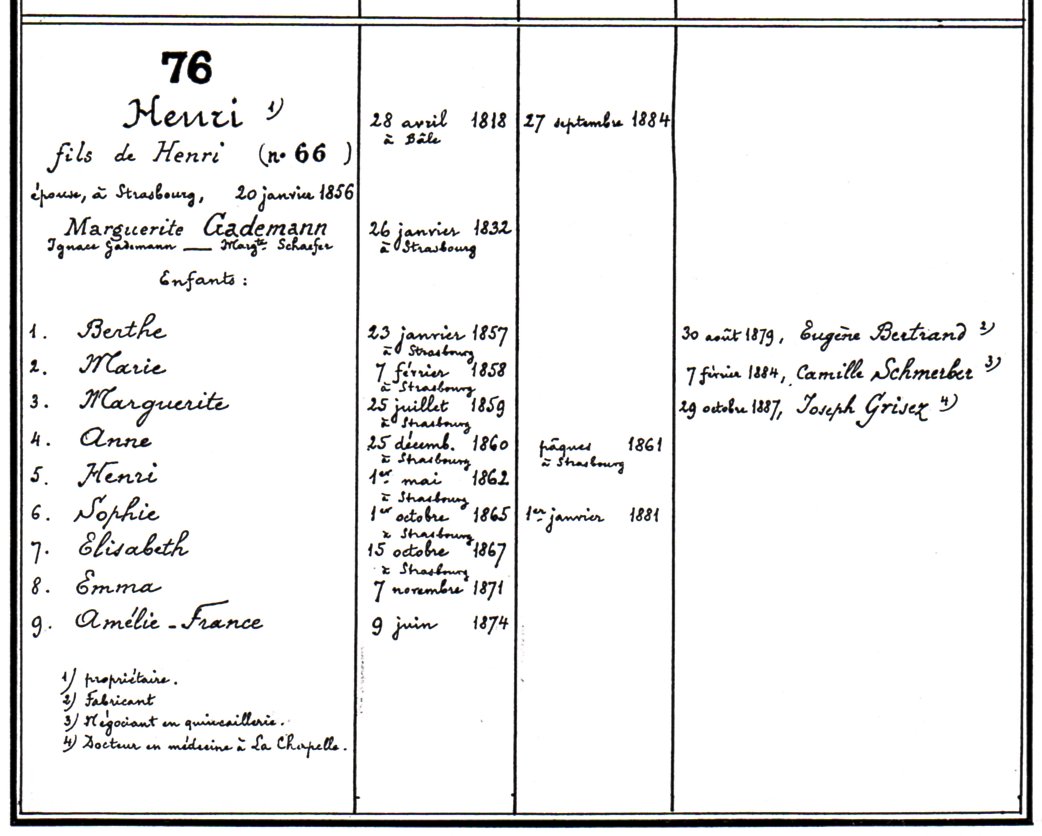 76
Henri 1) 28 avril 1818 27 septembre 1884
à Bâle
fils de Henri (nº 66 )
épouse, à Strasbourg, 20 janvier 1856
Marguerite Gademann 26 janvier 1832
Ignace Gademann — Margte. Schaefer à Strasbourg
Enfants :
1. Berthe 23 janvier 1857 30 août 1879, Eugène Bertrand 2)
à Strasbourg
2. Marie 7 février 1858 7 février 1884, Camille Schmerber 3)
à Strasbourg
3. Marguerite 25 juillet 1859 29 octobre 1887, Joseph Grisez 4)
à Strasbourg
4. Anne 25 décemb. 1860 pâques 1861
à Strasbourg à Strasbourg
5. Henri 1er mai 1862
à Strasbourg
6. Sophie 1er octobre 1865 1er janvier 1881
à Strasbourg
7. Elisabeth 15 octobre 1867
à Strasbourg
8. Emma 7 novembre 1871
9. Amélie - France 9 juin 1874
1) propriétaire.
2) Fabricant
3) Négociant en quincaillerie.
4) Docteur en médecine à La Chapelle.